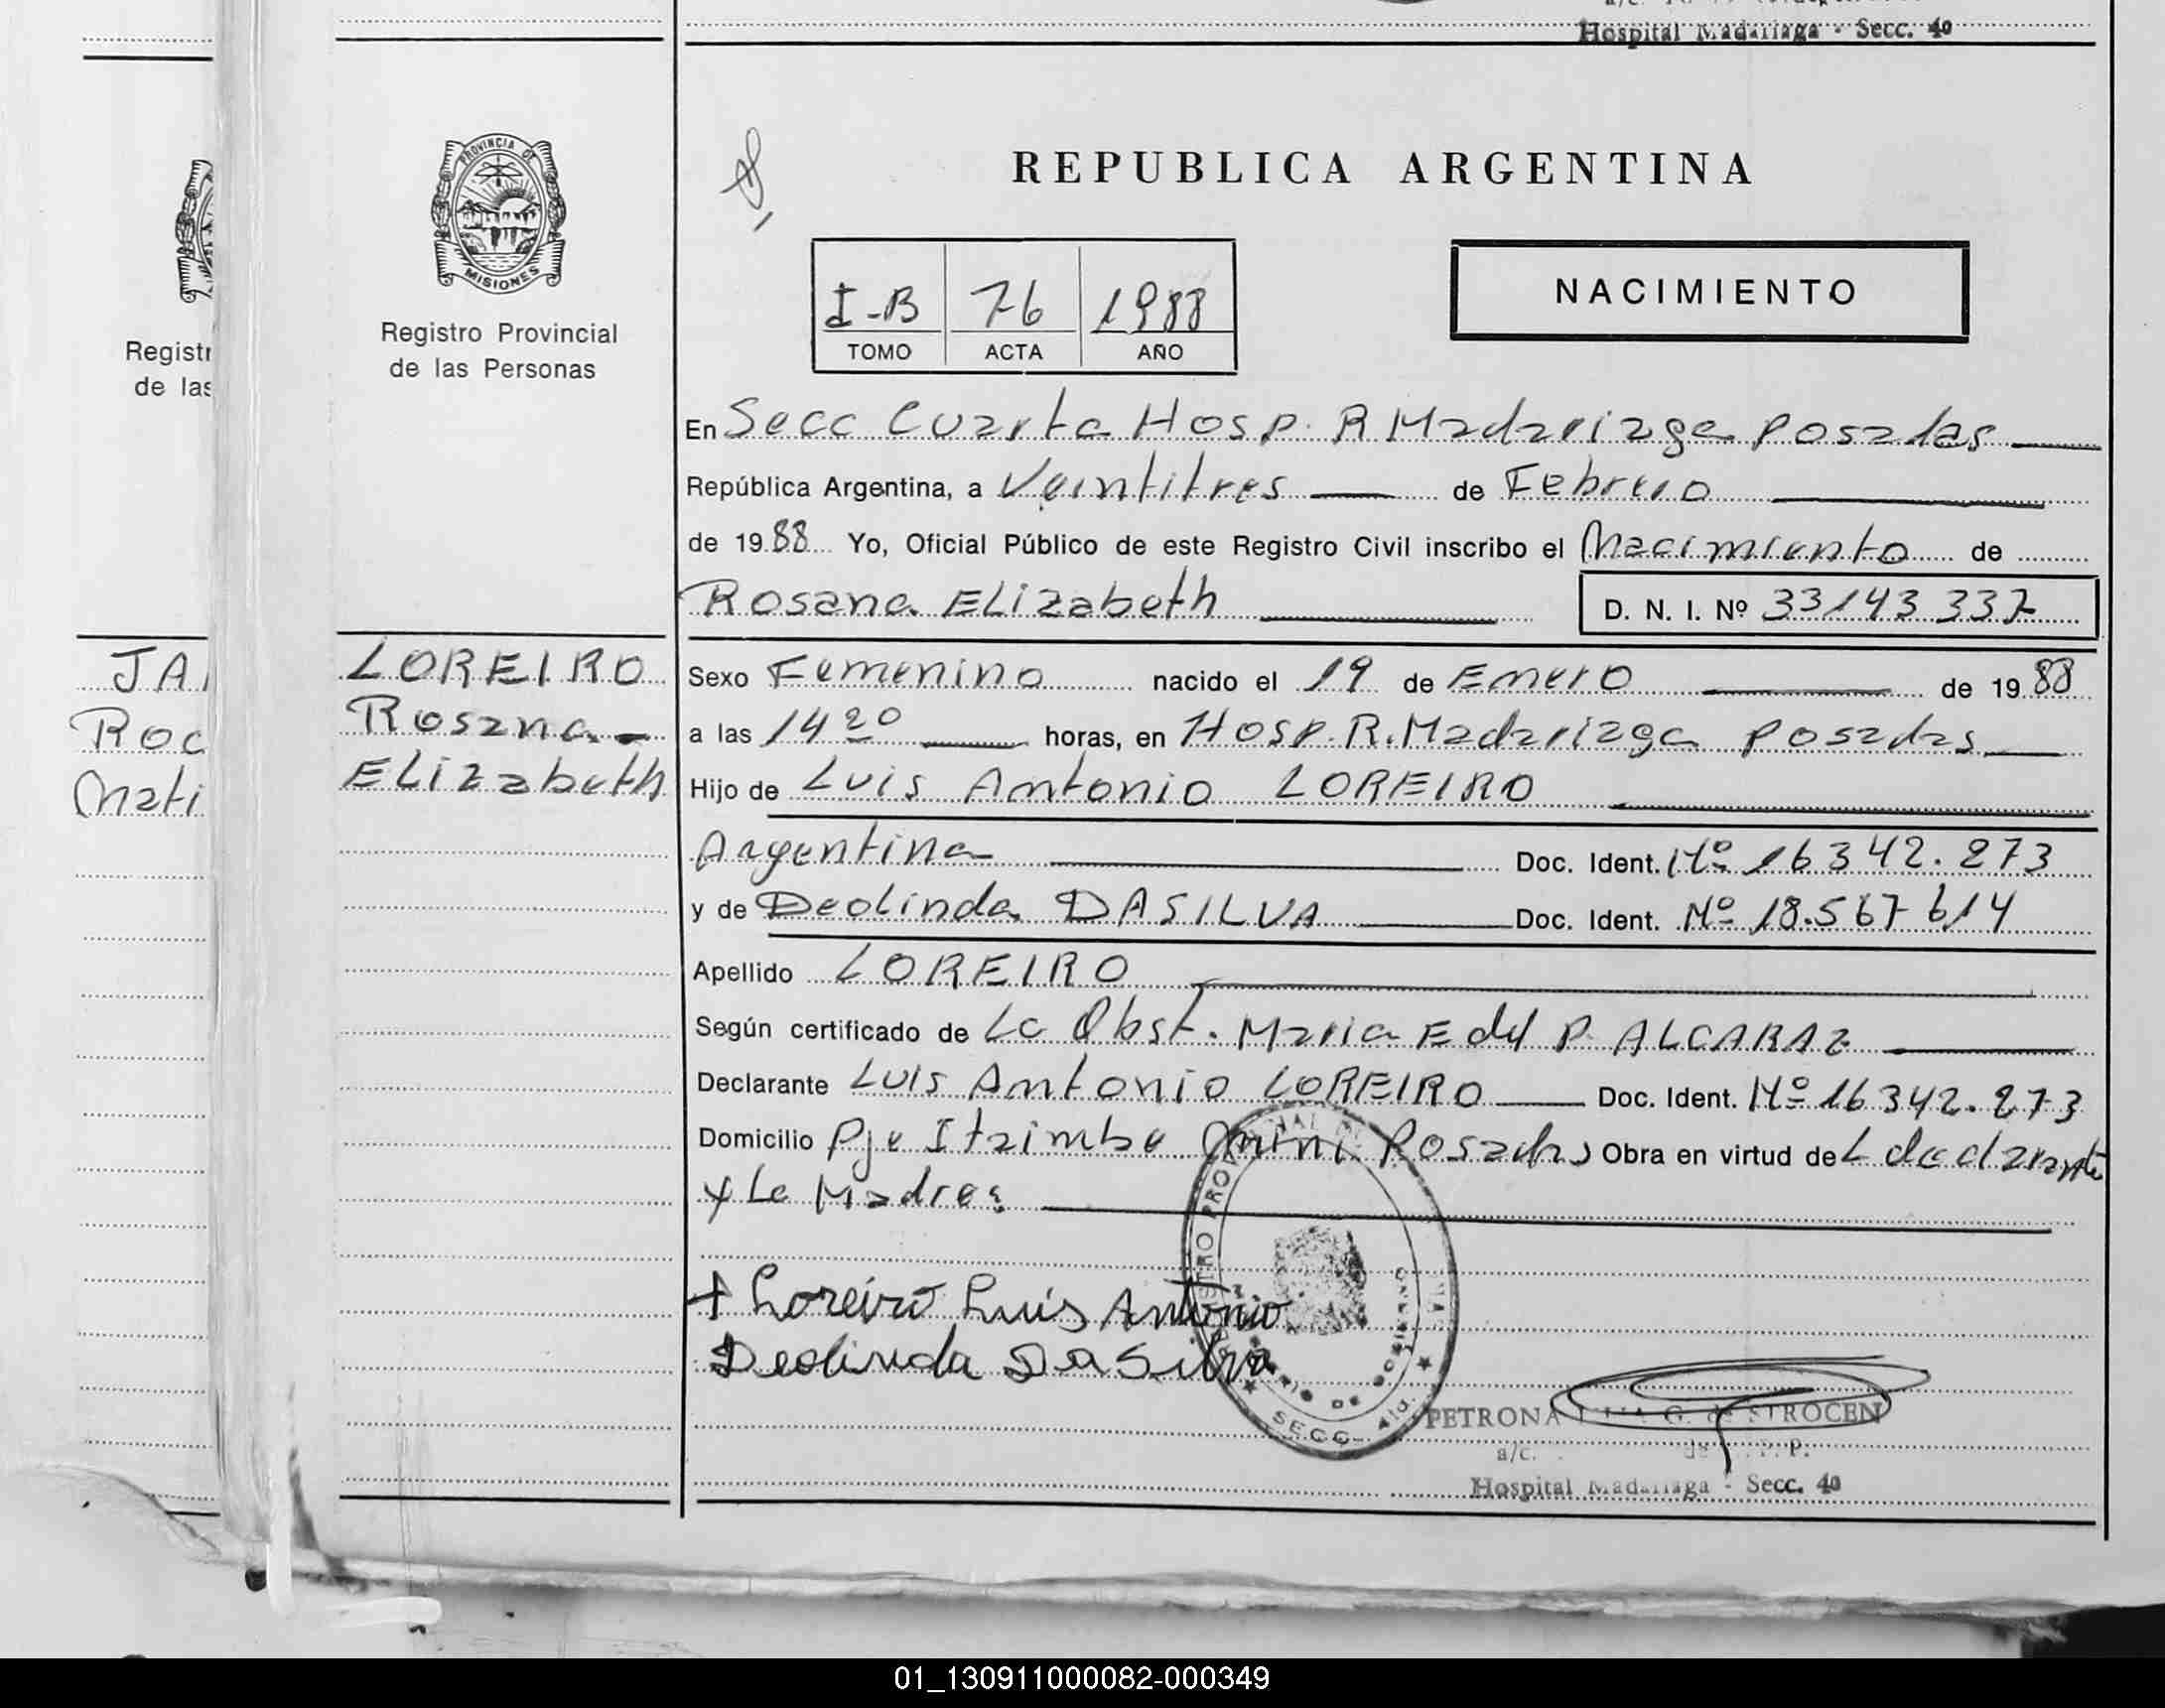 Hospital Madariaga - Secc. 4a
PROVINCIA DE
MISIONES
REPUBLICA ARGENTINA
I-B 76 1988
TOMO ACTA AÑO
NACIMIENTO
Registro Provincial
de las Personas
Regist
de las
En Secc Cuarta Hosp. R Madariaga Posadas
República Argentina, a Veintitres de Febrero
de 1988 Yo, Oficial Público de este Registro Civil inscribo el Nacimiento de
Rosana Elizabeth D. N. I. Nº 33143 337
JA
Roc
Mati
LOREIRO
Rosana
Elizabeth
Sexo Femenino nacido el 19 de Enero de 1988
a las 14 20 horas, en Hosp. R. Madariaga Posadas
Hijo de Luis Antonio LOREIRO
Argentina Doc. Ident. Nº 16342.273
y de Deolinda DASILVA Doc. Ident. Nº 18.567614
Apellido LOREIRO
Según certificado de La Obst. Maria E del P. ALCARAZ
Declarante Luis Antonio LOREIRO Doc. Ident. Nº 16342.273
Domicilio Pje Itaimbe Mini Posadas Obra en virtud del declarante
y La Madre
+ Loreiro Luis Antonio
Deolinda DaSilva
SECC 4ta.
PETRONA G. de SIROCEN
a/c.
Hospital Madariaga - Secc. 4a
01_130911000082-000349